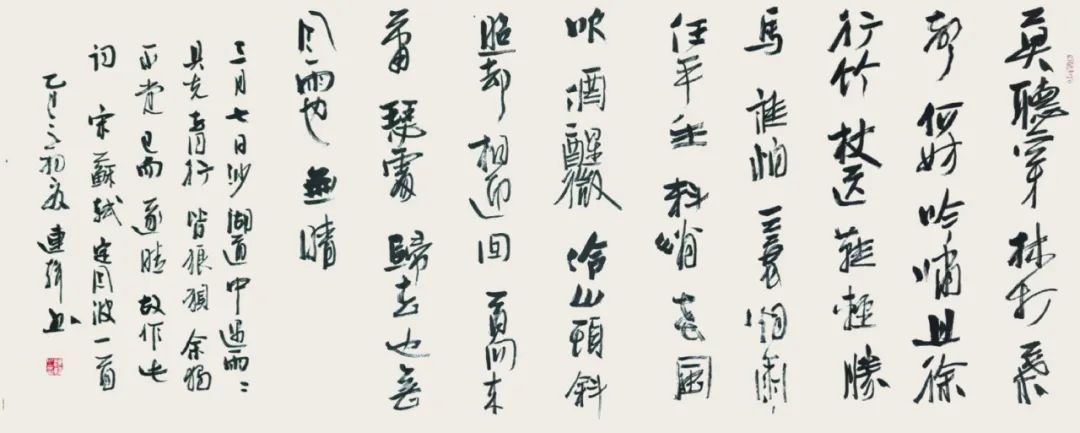 莫聽穿林打葉
聲何妨吟嘯且徐
行竹杖芒鞋輕勝
馬誰怕一蓑烟雨
任平生料峭春風
吹酒醒微冷山頭斜
照却相迎回首向來
蕭瑟處歸去也無
風雨也無晴
三月七日沙湖道中遇雨〻
具先去同行皆狼狽余獨
不覺已而遂晴故作此
詞 宋蘇軾定風波一首
乙巳之初夏連輯書